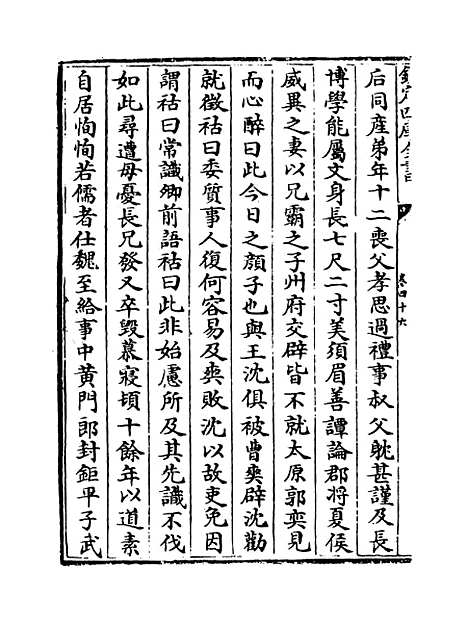 欽定四庫全書
卷四十六
后同産弟年十二喪父孝思過禮事叔父躭甚謹及長
博學能屬文身長七尺二寸美須眉善譚論郡將夏侯
威異之妻以兄霸之子州府交辟皆不就太原郭奕見
而心醉曰此今日之顔子也與王沈俱被曹爽辟沈勸
就徵祜曰委質事人復何容易及爽敗沈以故吏免因
謂祜曰常識卿前語祜曰此非始慮所及其先識不伐
如此尋遭母憂長兄發又卒毀慕寢頓十餘年以道素
自居恂恂若儒者仕魏至給事中黄門郎封鉅平子武